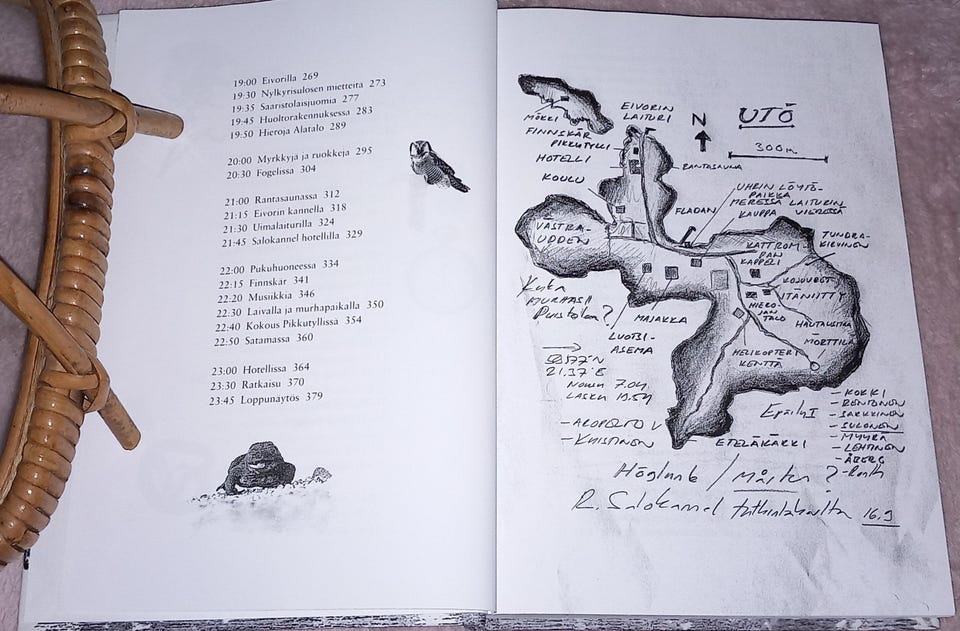 19:00 Eivorilla 269
19:30 Nylkyrisulosen mietteitä 273
19:35 Saaristolaisjuomia 277
19:45 Huoltorakennuksessa 283
19:50 Hieroja Alatalo 289
20:00 Myrkkyjä ja ruokkeja 295
20:30 Fogelissa 304
21:00 Rantasaunassa 312
21:15 Eivorin kannella 318
21:30 Uimalaiturilla 324
21:45 Salokannel hotellilla 329
22:00 Pukuhuoneessa 334
22:15 Finnskär 341
22:20 Musiikkia 346
22:30 Laivalla ja murhapaikalla 350
22:40 Kokous Pikkutyllissä 354
22:50 Satamassa 360
23:00 Hotellissa 364
23:30 Ratkaisu 370
23:45 Loppunäytös 379
UTÖ
N
300m
MÖKKI
FINNSKÄR
EIVORIN
LAITURI
PIKKUTYLLI
HOTELLI
RANTASAUNA
KOULU
UHRIN LÖYTÖ-
PAIKKA
MERESSÄ LAITURIN
VIERESSÄ
FLADAN
KAUPPA
VÄSTRA-
UDDEN
TUNDRA-
KATTROM-
PAN
KAPPELI
KOJUURET
ITÄNIITTY
HIERO-
JAN
TALO
HAUTAUSMAA
MÖRTTILÄ
MAJAKKA
LUOTSI-
ASEMA
HELIKOPTERI
KENTTÄ
Kuka
MURHASI
Puistolan?
21.37'E
Nousu 7.04
Lasku 19.54
- KUISTINEN
ETELÄKÄRKI
Epäilyt
- KOKKI
- RENTONEN
- SARKKINEN
- SULONEN
- MYYRÄ
- LEHTINEN
- ÅBERG
Höglund / Mårten ?
R. Salokannel tutkintakartta 16.9